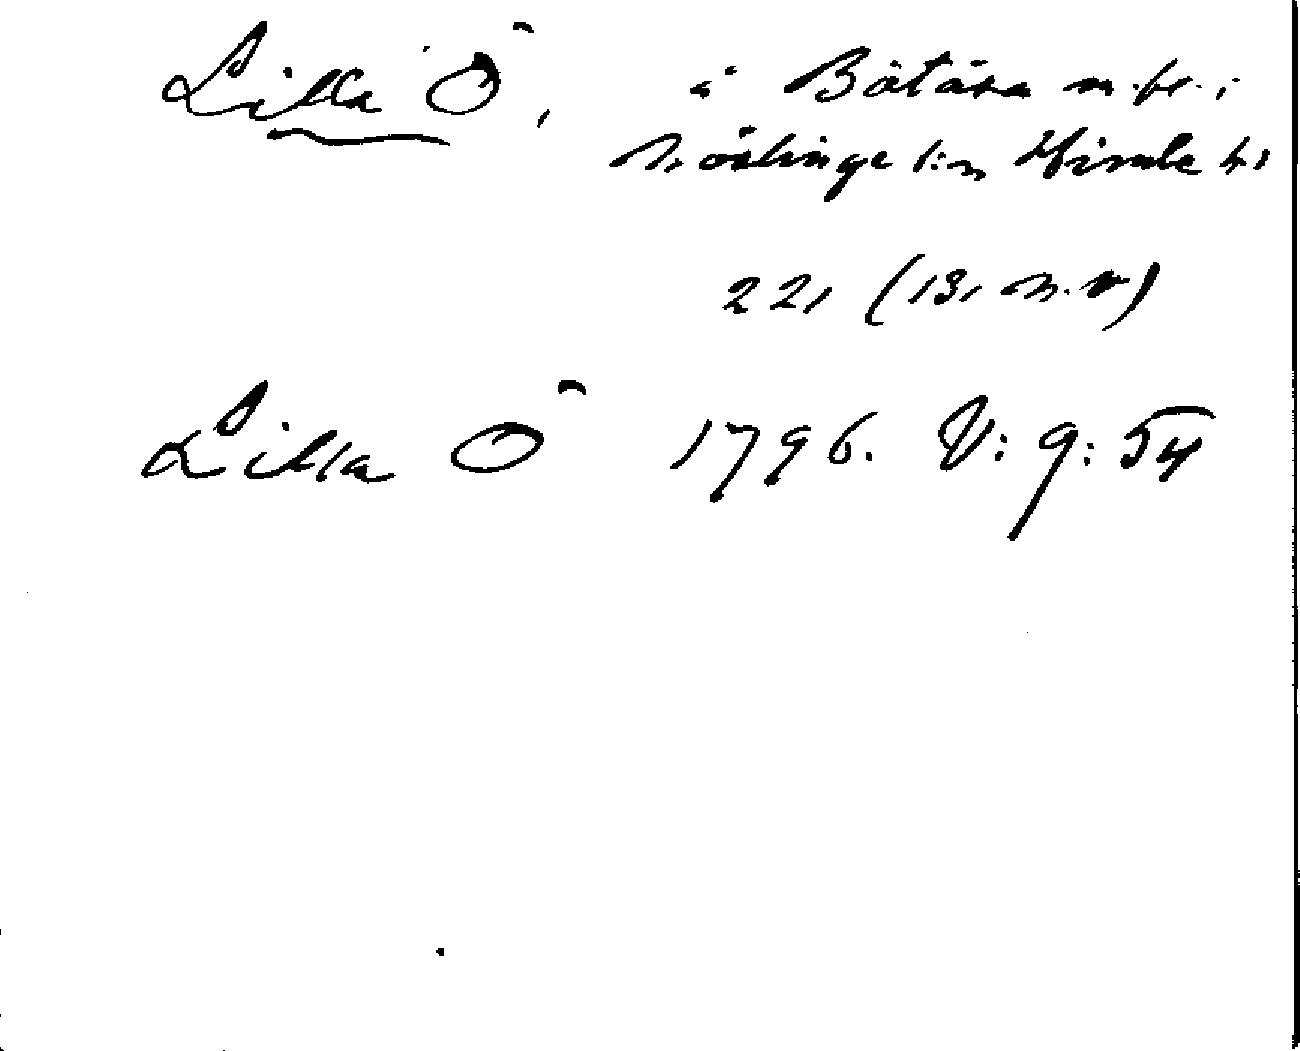 Lilla Ö, å Båtåsa n. fr. i
Nösslinge s:n Himle hd
22, (13, n. v)
Lilla Ö 1796. V: 9: 54